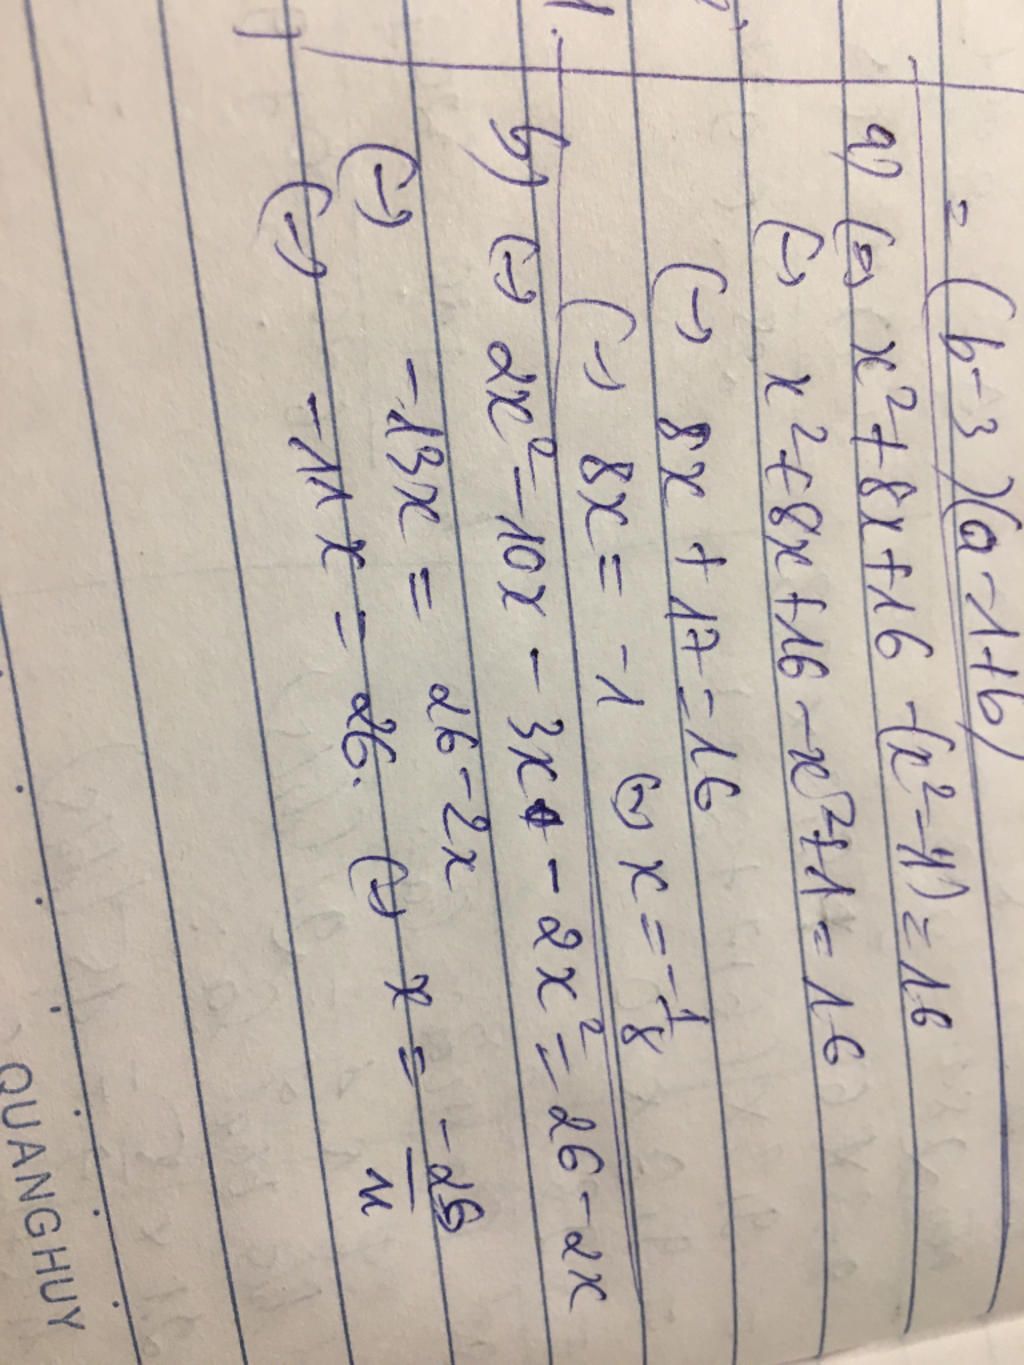 = (b-3)(a-1+b)
a) (=) x²+8x+16 -(x²-1) = 16
(=) x²+8x+16 - x²+1 = 16
(=) 8x + 17 = 16
(=) 8x = -1 (=) x = -1/8
b) (=) 2x² - 10x - 3x - 2x² = 26 - 2x
(=) -13x = 26 - 2x
(=) -11x = 26. (=) x = -26/11
QUANGHUY